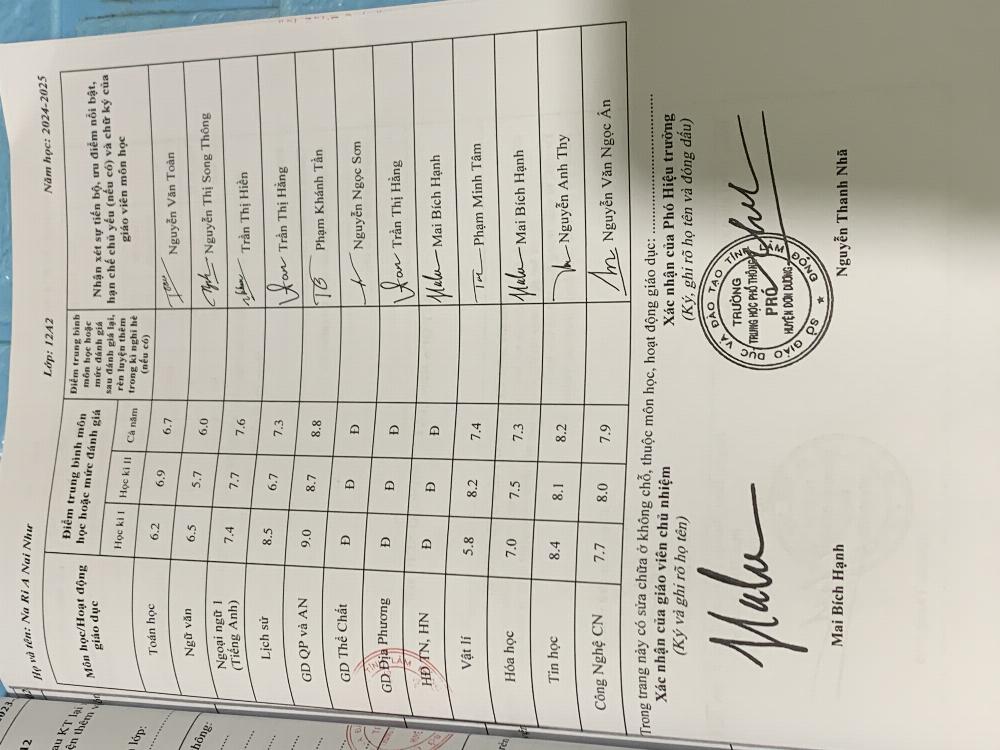 Họ và tên: Na Ri A Nai Như Lớp: 12A2 Năm học: 2024-2025
Môn học/Hoạt động giáo dục
Điểm trung bình môn học hoặc mức đánh giá
Học kì I Học kì II Cả năm
Điểm trung bình môn học hoặc mức đánh giá sau đánh giá lại, rèn luyện thêm trong kì nghỉ hè (nếu có)
Nhận xét sự tiến bộ, ưu điểm nổi bật, hạn chế chủ yếu (nếu có) và chữ ký của giáo viên môn học
Toán học 6.2 6.9 6.7 Nguyễn Văn Toàn
Ngữ văn 6.5 5.7 6.0 Nguyễn Thị Song Thông
Ngoại ngữ 1 (Tiếng Anh) 7.4 7.7 7.6 Trần Thị Hiền
Lịch sử 8.5 6.7 7.3 Trần Thị Hằng
GD QP và AN 9.0 8.7 8.8 Phạm Khánh Tân
GD Thể Chất Đ Đ Đ Nguyễn Ngọc Sơn
GD Địa Phương Đ Đ Đ Trần Thị Hằng
HĐ TN, HN Đ Đ Đ Mai Bích Hạnh
Vật lí 5.8 8.2 7.4 Phạm Minh Tâm
Hóa học 7.0 7.5 7.3 Mai Bích Hạnh
Tin học 8.4 8.1 8.2 Nguyễn Anh Thy
Công Nghệ CN 7.7 8.0 7.9 Nguyễn Văn Ngọc Ân
Trong trang này có sửa chữa ở không chỗ, thuộc môn học, hoạt động giáo dục: ..............................
Xác nhận của giáo viên chủ nhiệm
(Ký và ghi rõ họ tên)
Mai Bích Hạnh
Xác nhận của Phó Hiệu trưởng
(Ký, ghi rõ họ tên và đóng dấu)
SỞ GIÁO DỤC VÀ ĐÀO TẠO TỈNH LÂM ĐỒNG
TRƯỜNG
TRUNG HỌC PHỔ THÔNG
PRÓ
HUYỆN ĐƠN DƯƠNG
Nguyễn Thanh Nhã